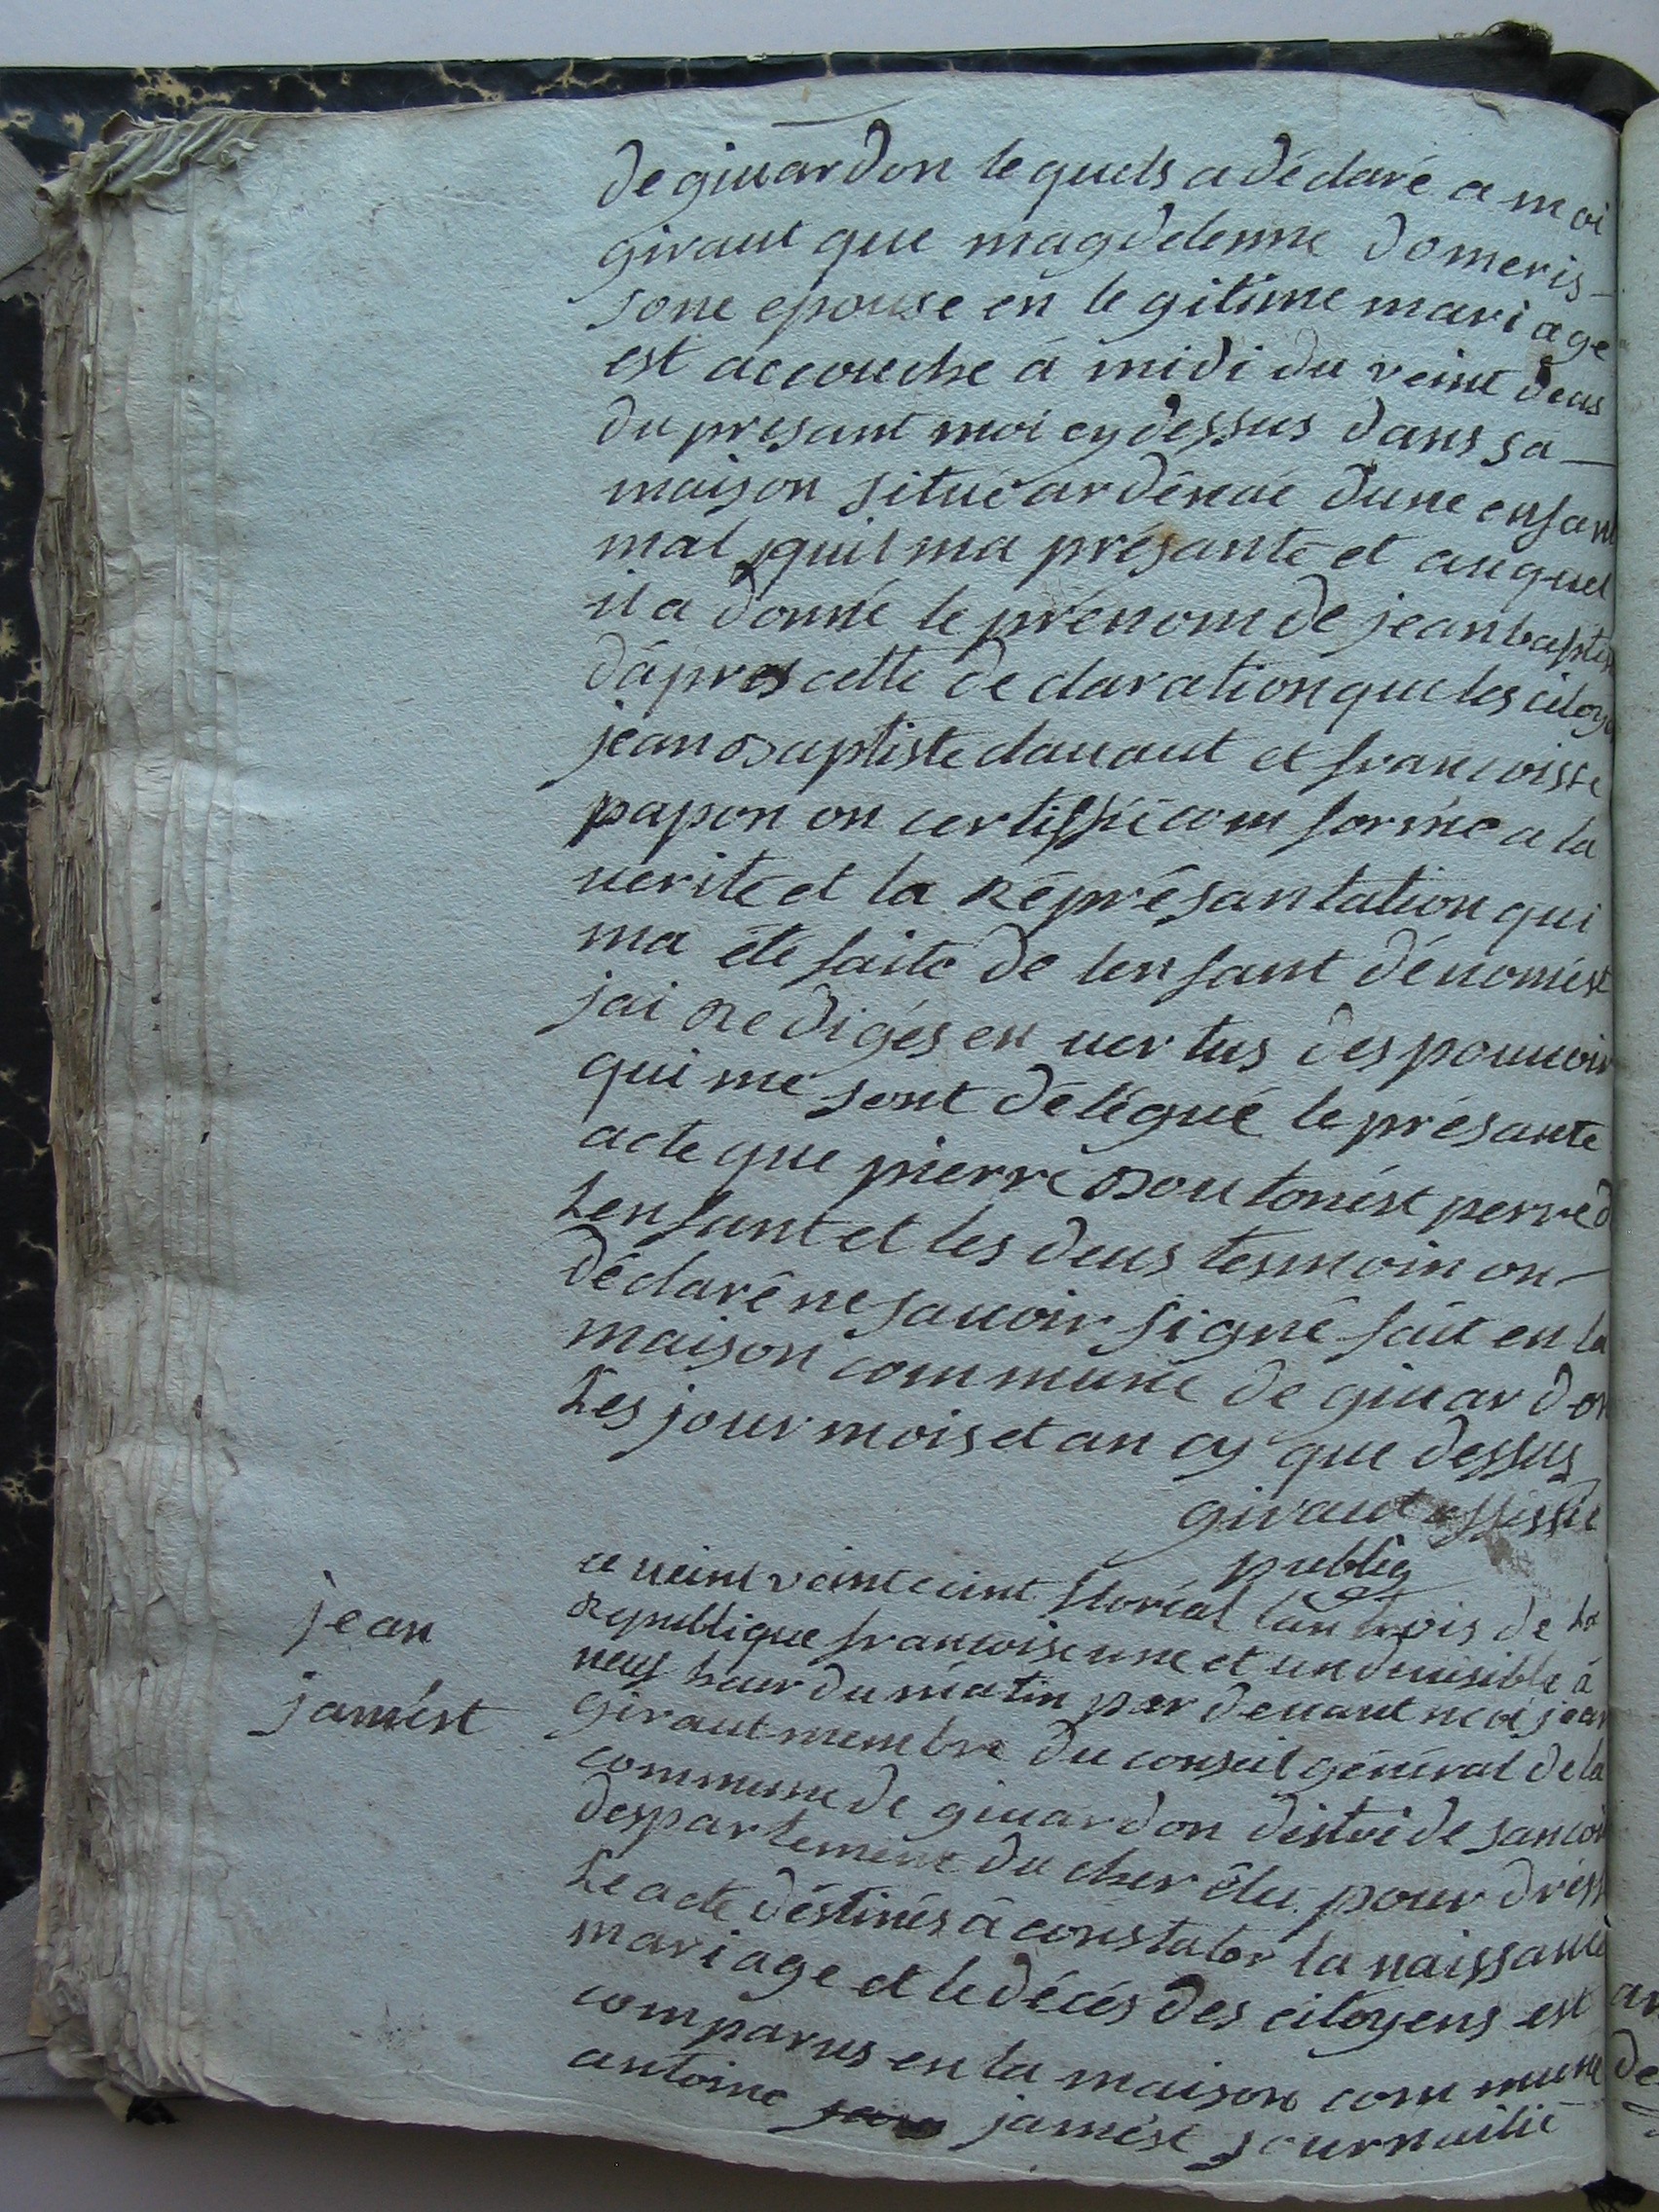 de giuardon lequels a déclaré a moi
giraut que magdelenne domeris
sone epouse en legitime mariage
est accouche á midi du veint deus
du presant moi cy dessus dans sa
maison situé ardénaé dune enfant
mal quil ma présanté et auquel
il a donné le prénom de jean baptiste
dápres cette declaration que les citoy
jean Baptiste dauaut et francoisse
papon on certiffié com formé a la
uerité et la Réprésantation qui
ma été faite de lenfant dénomést
jai Redigés en uertus des pouuoir
qui me sont délégué le présante
acte que pierre Boutonést perre d
Lenfant et les deus tesmoin on
déclaré ne sauoir signé fait en la
maison commune de giuardon
Les jour mois et an cy que dessus
giraut offissié
publiq
jean
jamést
ce ueint veint cint floréal lan trois de la
Republique francoise une et undeuisible á
neuf heur du matin par deuant moi jean
giraut membre du conseil général de la
commune de giuardon distri de sancoin
despartement du cher élu pour dréss
Le acte déstinés á constater la naissance
mariage et le décés des citoyens est
comparus en la maison commune
antoine jamést journailié